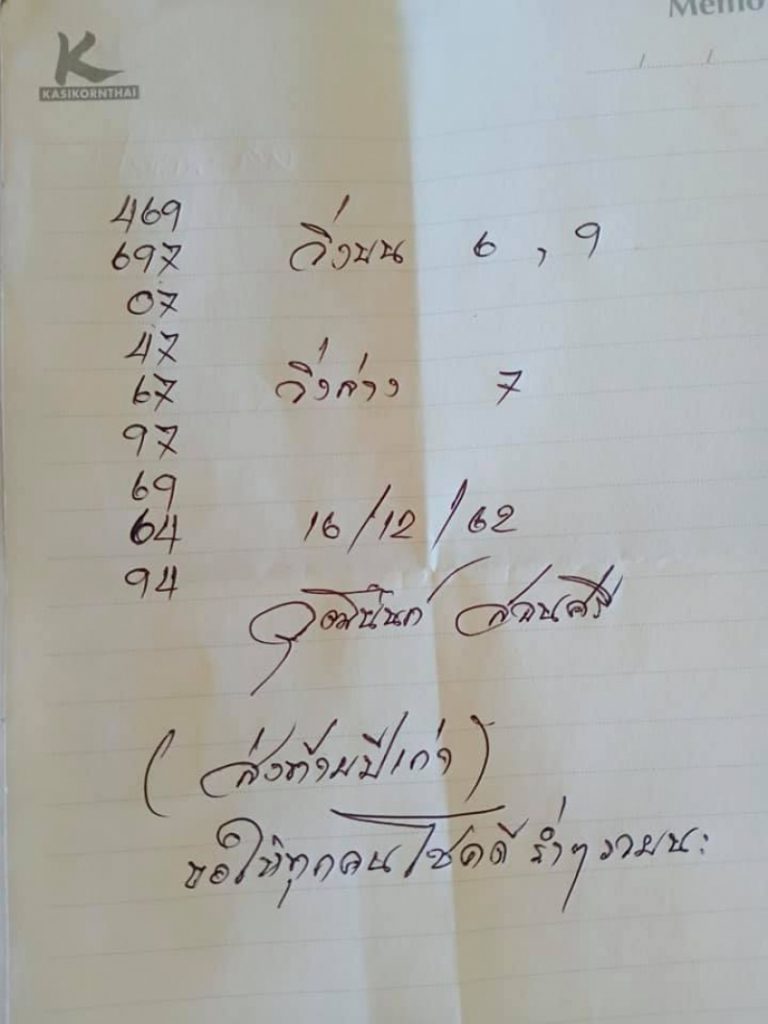 Memo
K
KASIKORNTHAI
/ /
469
697 วิ่งบน 6 , 9
07
47
67 วิ่งล่าง 7
97
69
64 16/12/62
94
สวนศรี
(ส่งท้ายปีเก่า)
ขอให้ทุกคนโชคดี ร่ำๆ รวยนะ